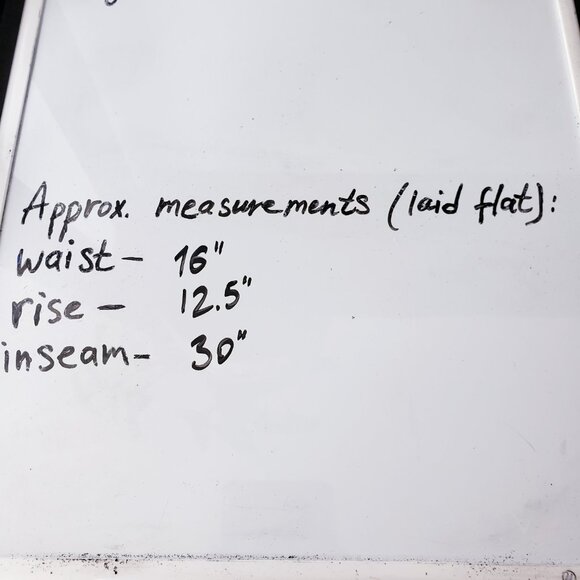 Approx. measurements (laid flat):
waist- 16"
rise - 12.5"
inseam- 30"